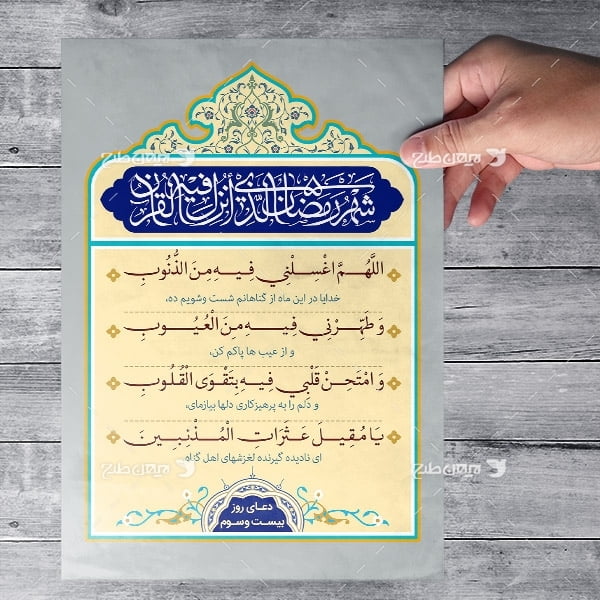 شَهْرُ رَمَضَانَ الَّذِي أُنْزِلَ فِيهِ الْقُرْآنُ
اللَّهُمَّ اغْسِلْنِي فِيهِ مِنَ الذُّنُوبِ
خدایا در این ماه از گناهانم شست وشویم ده،
وَ طَهِّرْنِي فِيهِ مِنَ الْعُيُوبِ
و از عیب ها پاکم کن،
وَ امْتَحِنْ قَلْبِي فِيهِ بِتَقْوَى الْقُلُوبِ
و دلم را به پرهیزکاری دلها بیازمای،
يَا مُقِيلَ عَثَرَاتِ الْمُذْنِبِينَ
ای نادیده گیرنده لغزشهای اهل گناه.
دعای روز
بیست وسوم